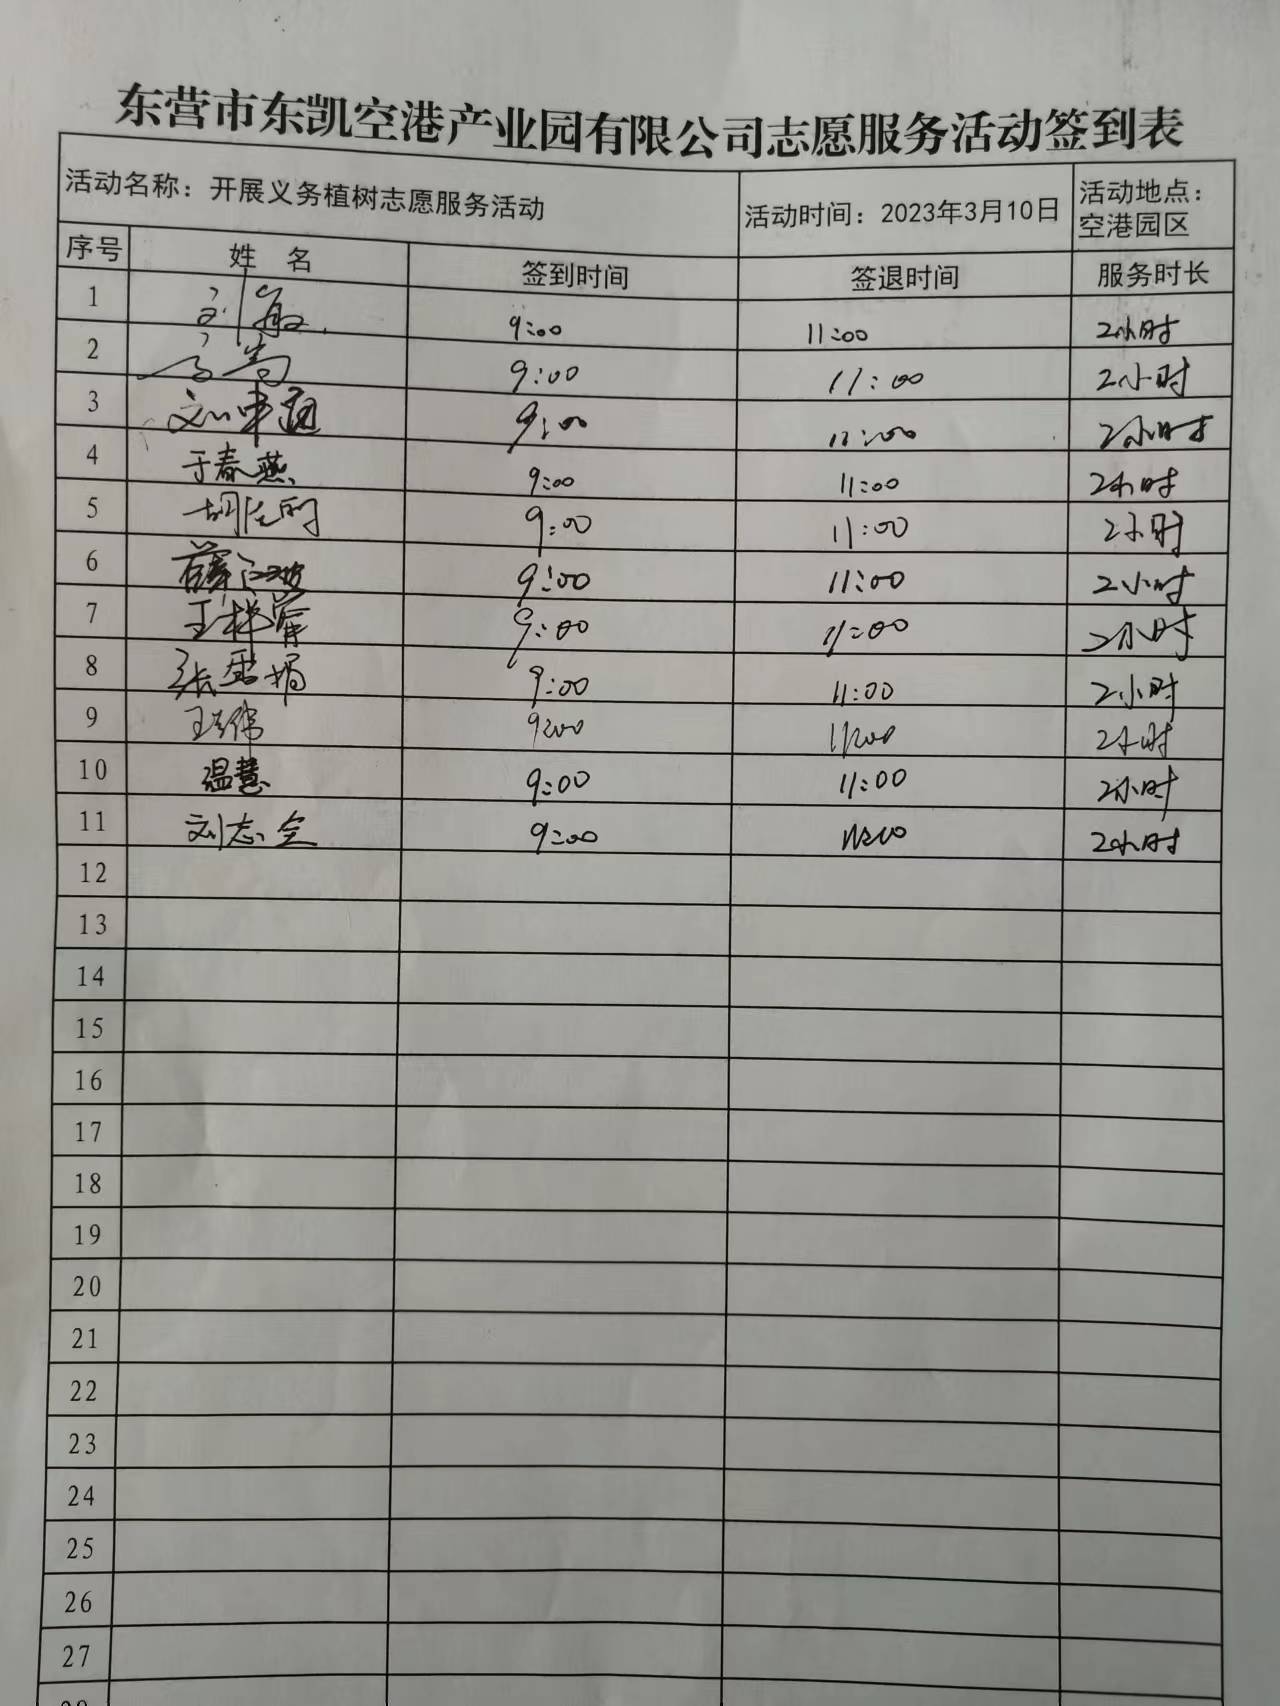 东营市东凯空港产业园有限公司志愿服务活动签到表
活动名称：开展义务植树志愿服务活动 活动时间：2023年3月10日 活动地点：空港园区
序号 姓 名 签到时间 签退时间 服务时长
1 刘敏 9:00 11:00 2小时
2 9:00 11:00 2小时
3 9:00 11:00 2小时
4 于春燕 9:00 11:00 2小时
5 9:00 11:00 2小时
6 薛江波 9:00 11:00 2小时
7 9:00 11:00 2小时
8 张雪娟 9:00 11:00 2小时
9 9:00 11:00 2小时
10 温慧 9:00 11:00 2小时
11 刘志全 9:00 11:00 2小时
12
13
14
15
16
17
18
19
20
21
22
23
24
25
26
27